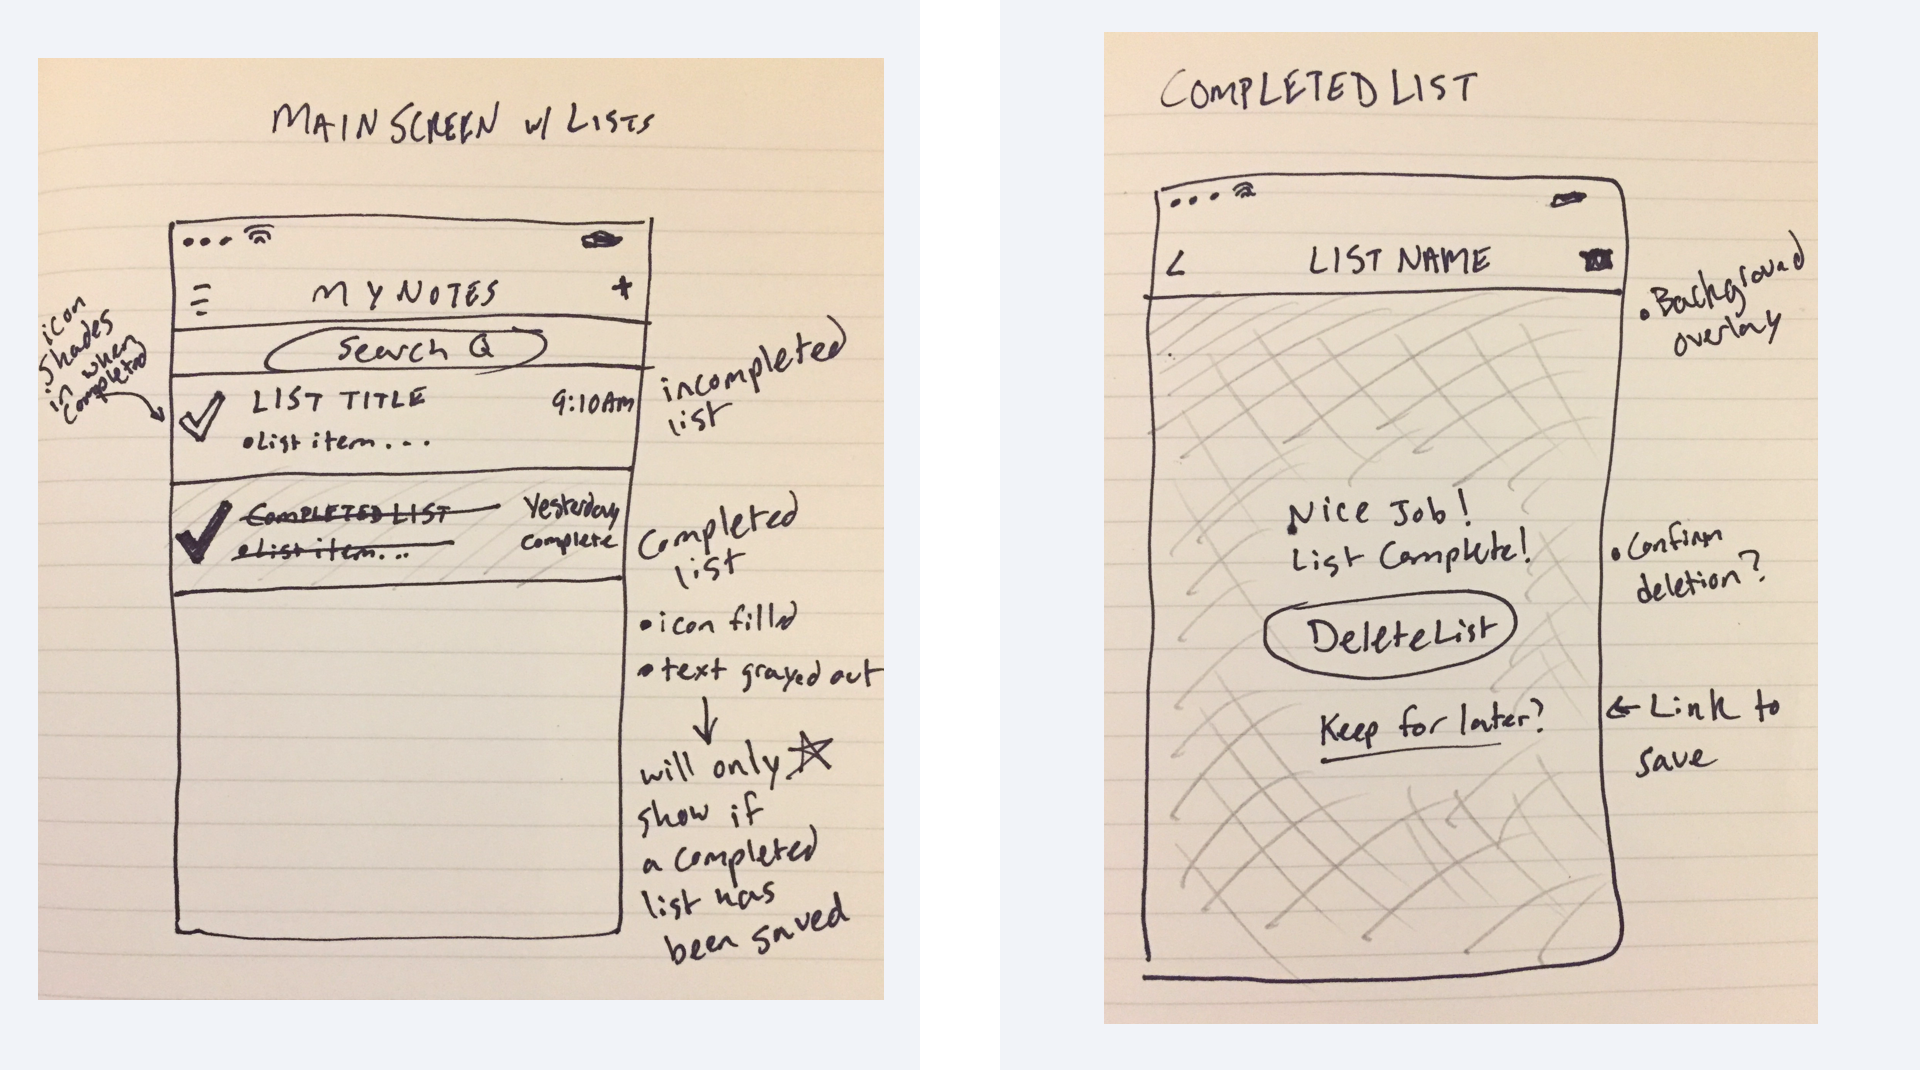 MAIN SCREEN w/ LISTS
MY NOTES +
Search
icon
shades
in when
completed
LIST TITLE 9:10AM
• List item...
incompleted
list
COMPLETED LIST Yesterday
• List item... complete
Completed
list
• icon filled
• text grayed out
will only
show if
a completed
list has
been saved
COMPLETED LIST
< LIST NAME
• Background
overlay
Nice Job!
List Complete!
• Confirm
deletion?
Delete List
Keep for later?
← Link to
save